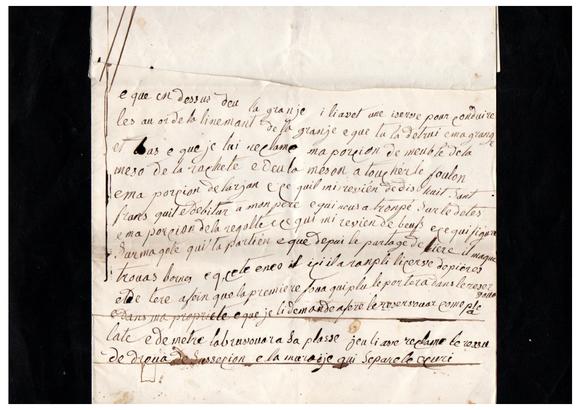 e que en dessus deu la granje i liavet une iserve pour conduire
les au or de la linemant de la granje e que lu la detrui e ma grange
et bas e que je lui reclame ma porcion de meuble de la
meso de la rachete e deu la meson a toucher le foulon
e ma porcion de larjan e ce quil mi revien de dis huit sant
frans quil e debitur a mon père e qui nous a trompé sur le detes
e ma porcion de la regolte e ce qui mi revien de beufs e ce qui figure
sur ma gete qui la partien e que depui la partage de tiere il maque
trouas bornes e qu ete enco il ici ila ranpli liserve de pieres
e de tere afin que la premiere fona qui plu le portera dans le reser
e dans ma propriete e que je li demande afere le reservouar comepla
late e de metre labruvouara sa plasse jeu li ave reclame le
de droua de sussecion e la muradje qui separe le curi